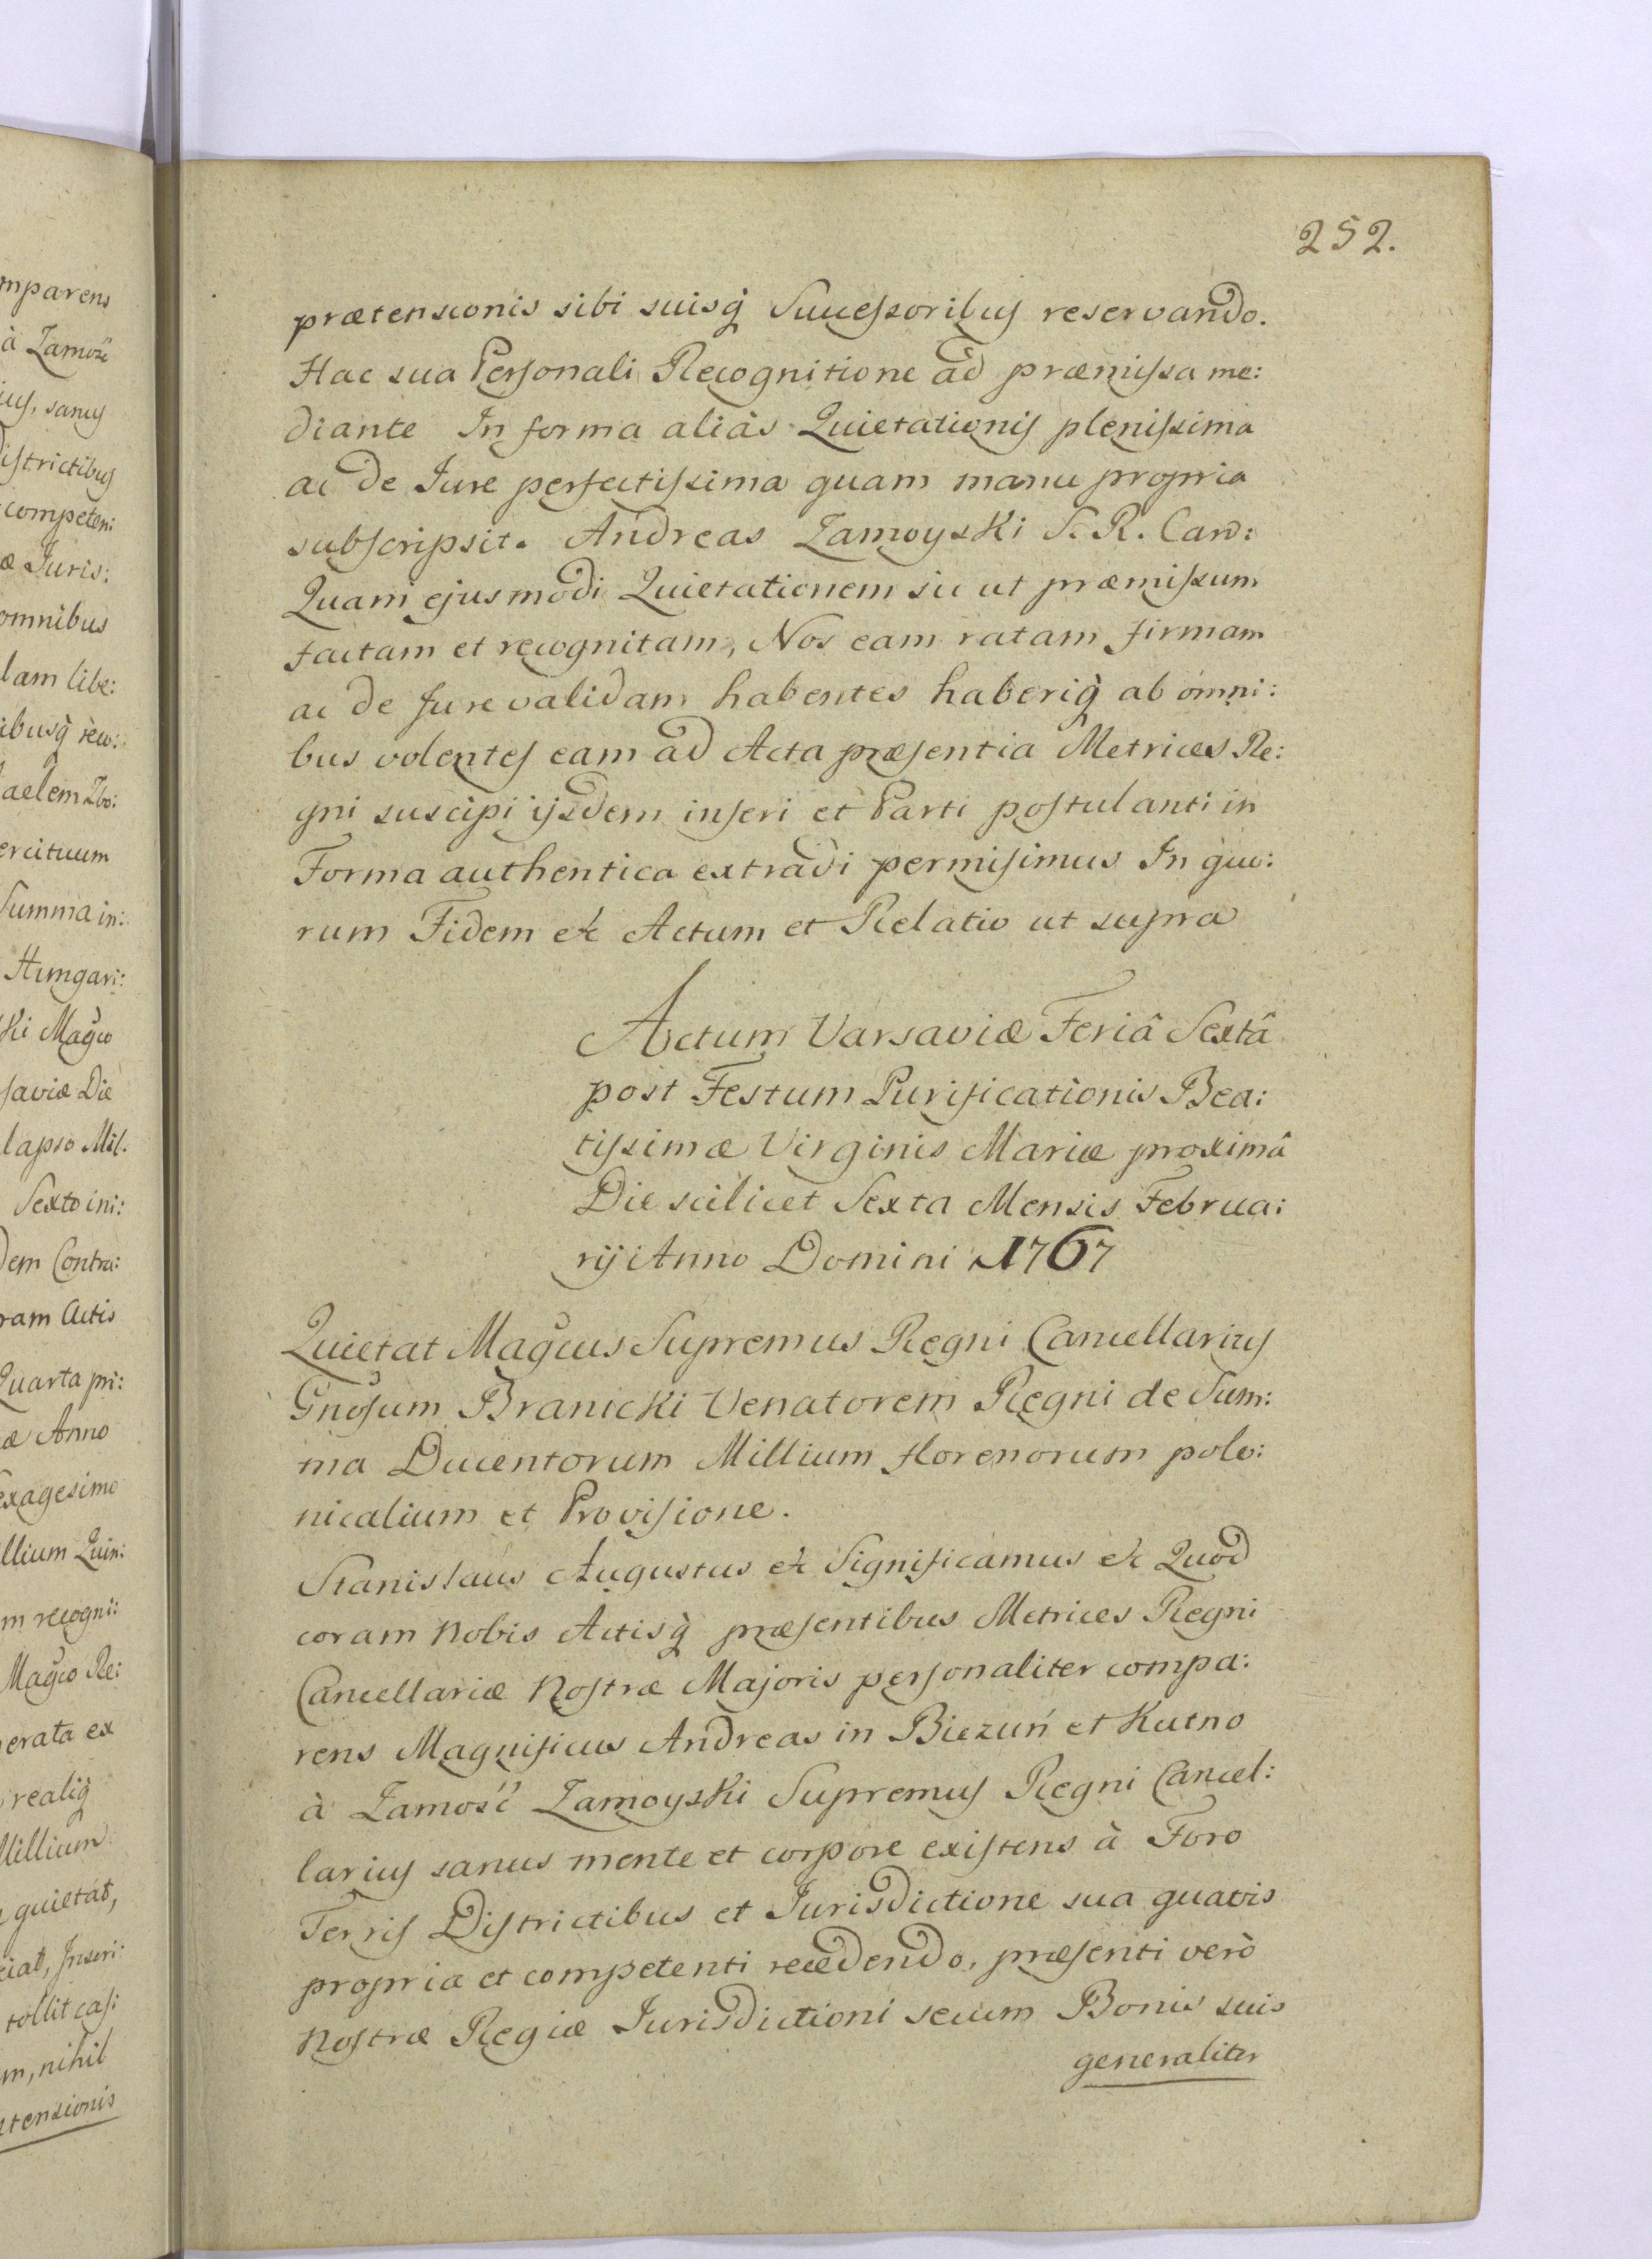 252.
mparens
à Zamość
ius, sanus
istrictibus
competen:
æ Juris:
omnibus
lam libe:
ibusq̀ reco:
aelem Zbo:
ercituum
Summa in:
Hungari:
ki Magco
saviæ Die
lapso Mil.
Sexto ini:
dem Contra:
ram Actis
Quarta pri:
æ Anno
exagesimo
llium Quin:
m recogni:
Magco Re:
erata ex
realiq̀
Millium
quietat,
ciat, Inseri:
tollit cas:
m, nihil
tensionis
prætensionis sibi suisq̀ Successoribus reservando.
Hac sua Personali Recognitione ad præmissa me:
diante In forma aliàs Quietationis plenissima
ac de Iure perfectissima quam manu propria
subscripsit. Andreas Zamoyski S. R. Canc:
Quam ejusmodi Quietationem sic ut præmissum
factam et recognitam, Nos eam ratam firmam
ac de Jure validam habentes haberiq̀ ab omni:
bus volentes eam ad Acta præsentia Metrices Re:
gni suscipi ijsdem inseri et Parti postulanti in
Forma authentica extradi permisimus In quo:
rum Fidem &c Actum et Relatio ut supra
Actum Varsaviæ Feriâ Sextâ
post Festum Purificationis Bea:
tissimæ Virginis Mariæ proximâ
Die scilicet Sexta Mensis Februa:
rij Anno Domini 1767
Quietat Magcus Supremus Regni Cancellarius
Gnosum Branicki Venatorem Regni de Sum:
ma Ducentorum Millium florenorum polo:
nicalium et Provisione.
Stanislaus Augustus &c Significamus &c Quod
coram Nobis Actisq̀ præsentibus Metrices Regni
Cancellariæ Nostræ Majoris personaliter compa:
rens Magnificus Andreas in Biezuń et Kutno
à Zamość Zamoyski Supremus Regni Cancel:
larius sanus mente et corpore existens à Foro
Terris Districtibus et Jurisdictione sua quavis
propria et competenti recedendo, præsenti verò
Nostræ Regiæ Jurisdictioni secum Bonis suis
generaliter